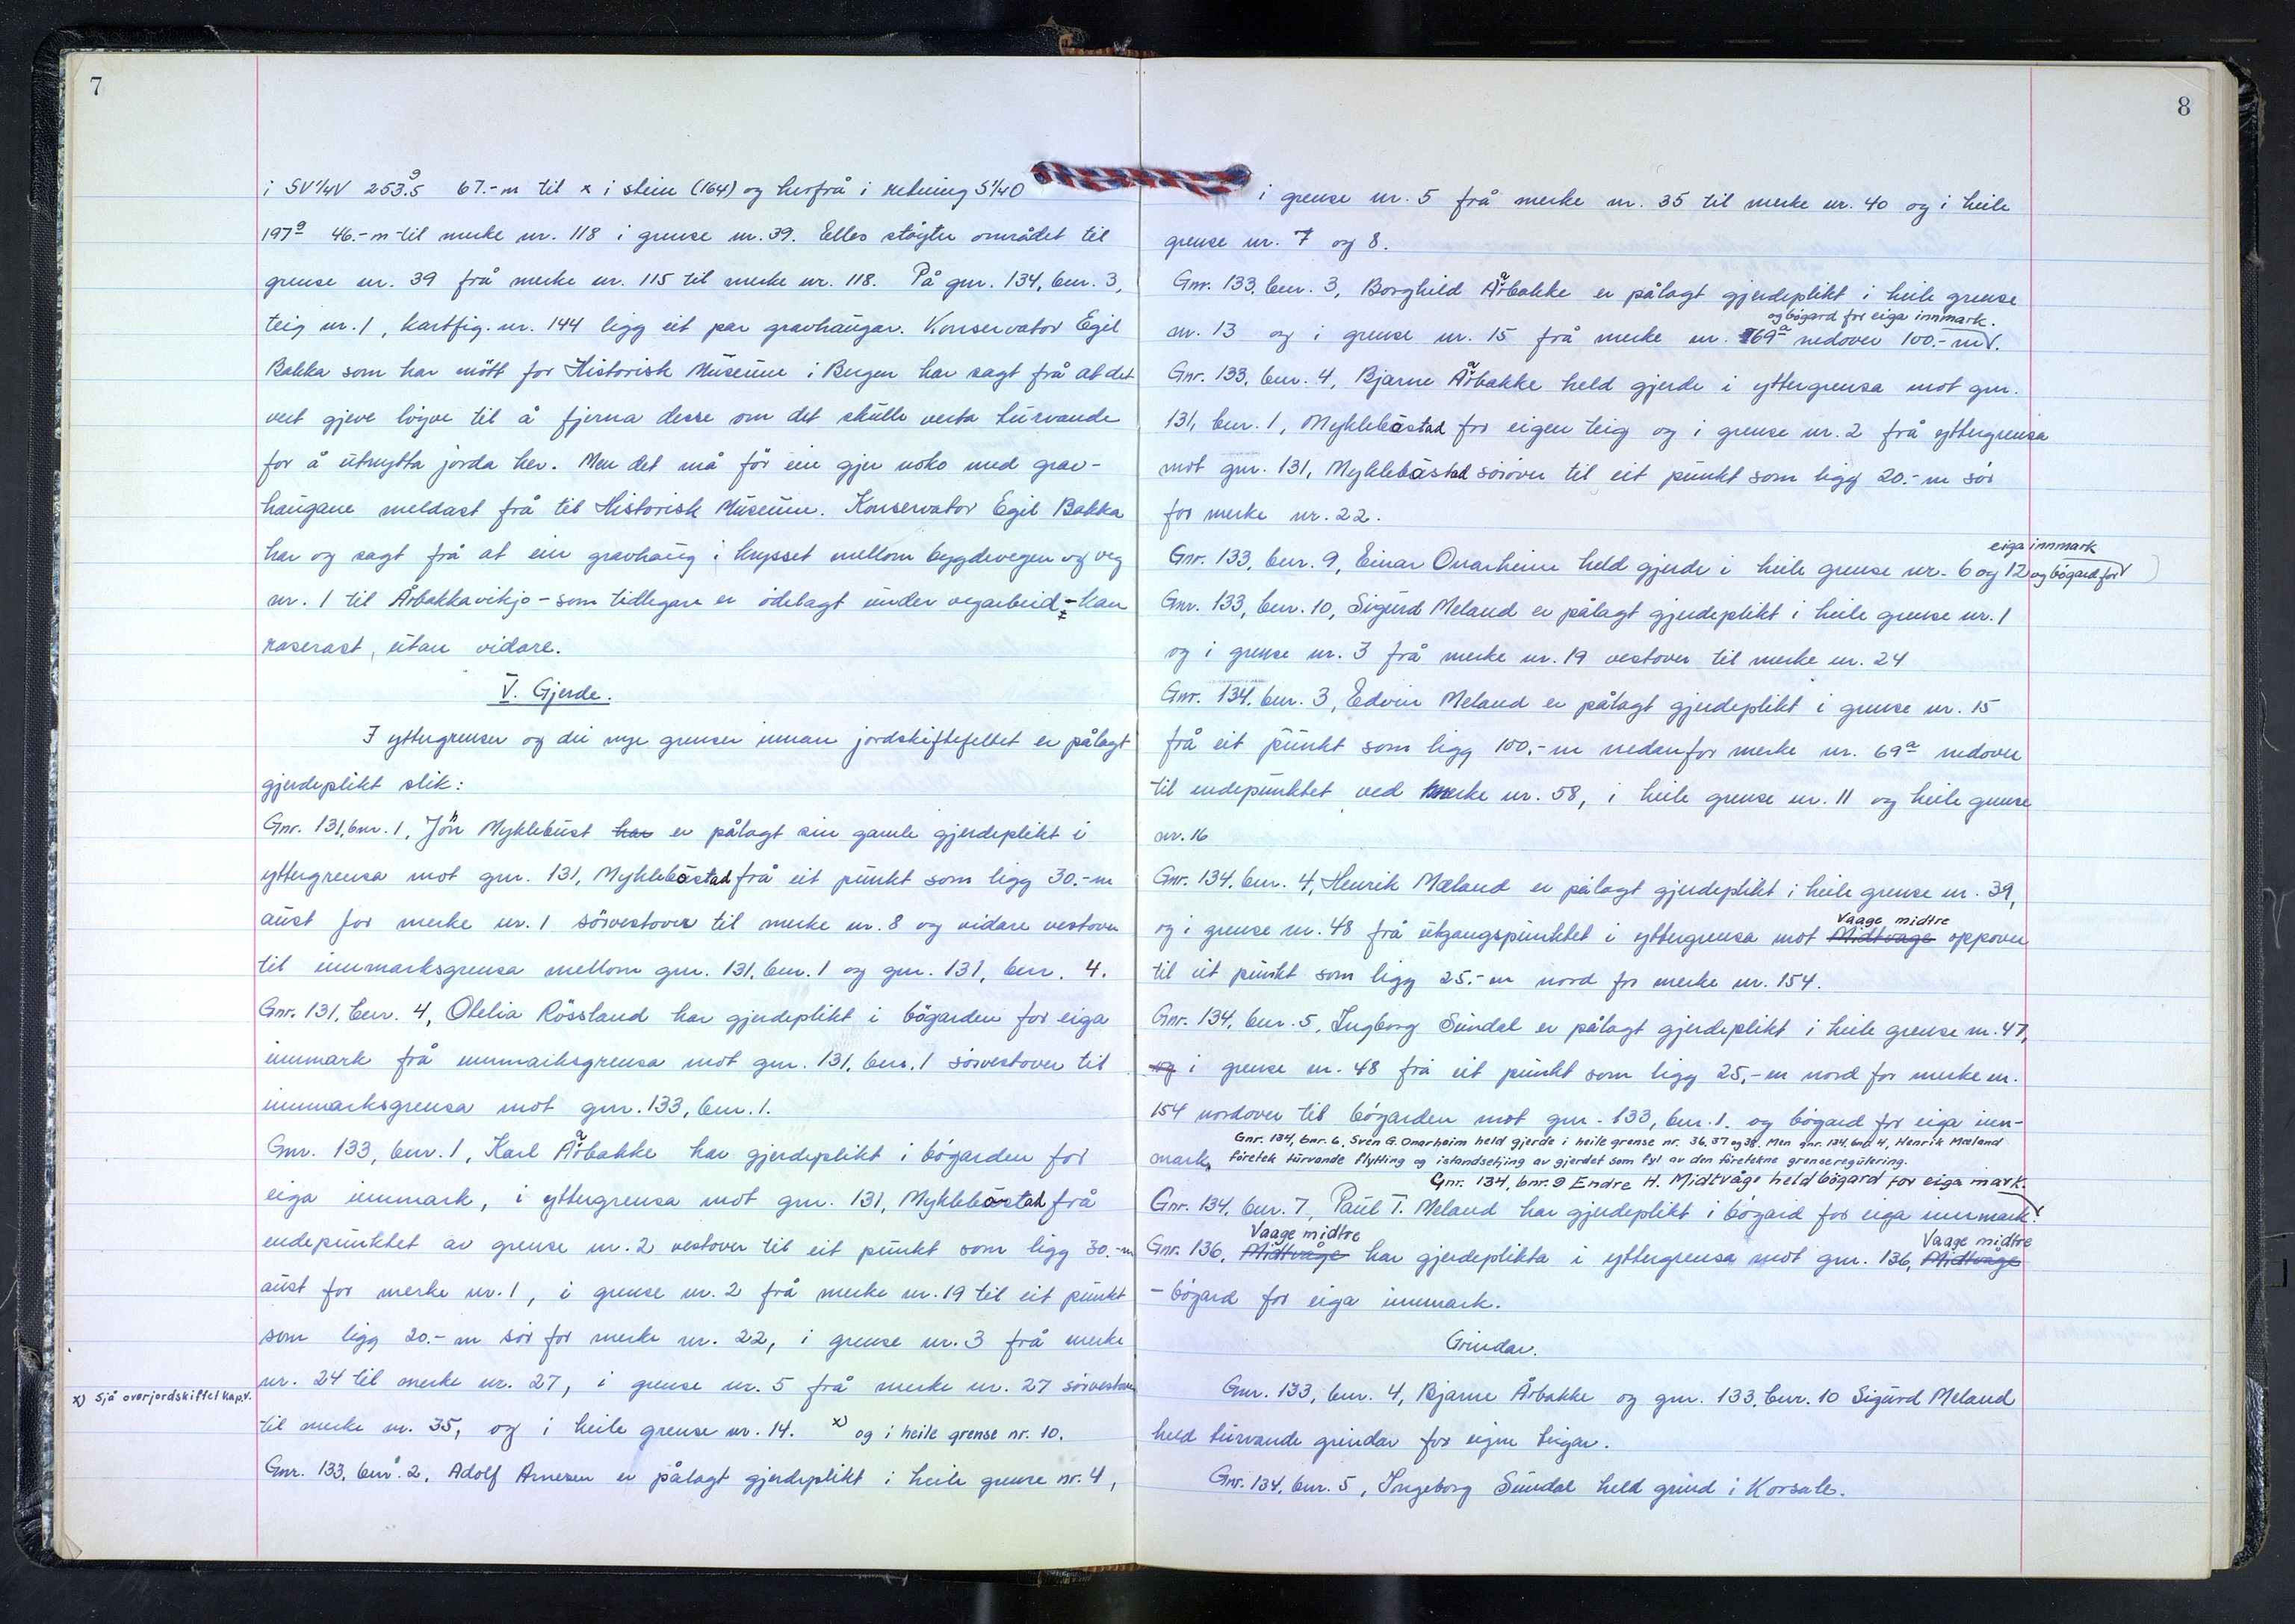 7
i SV¼V 253.ᵍ5 67.-m til x i stein (164) og herfrå i retning S¼O
197ᵍ 46.-m til merke nr. 118 i grense nr. 39. Elles støyter området til
grense nr. 39 frå merke nr. 115 til merke nr. 118. På gnr. 134, bnr. 3,
teig nr. 1, kartfig. nr. 144 ligg eit par gravhaugar. Konservator Egil
Bakka som har møtt for Historisk Museum i Bergen har sagt frå at det
vert gjeve løyve til å fjerna desse om det skulle verta turvande
for å utnytta jorda her. Men det må før ein gjer noko med grav-
haugane meldast frå til Historisk Museum. Konservator Egil Bakka
har og sagt frå at ein gravhaug i krysset mellom bygdevegen og veg
nr. 1 til Årbakkavikjo - som tidlegare er ødelagt under vegarbeid - kan
raserast, utan vidare.
V. Gjerde.
I yttergrenser og dei nye grenser innan jordskiftefeltet er pålagt
gjerdeplikt slik:
Gnr. 131, bnr. 1, Jon Myklebust har er pålagt sin gamle gjerdeplikt i
yttergrensa mot gnr. 131, Myklebåstad frå eit punkt som ligg 30.-m
aust for merke nr. 1 sørvestover til merke nr. 8 og vidare vestover
til innmarksgrensa mellom gnr. 131, bnr. 1 og gnr. 131, bnr. 4.
Gnr. 131, bnr. 4, Olelia Røssland har gjerdeplikt i bøgarden for eiga
innmark frå innmarksgrensa mot gnr. 131, bnr. 1 sørvestover til
innmarksgrensa mot gnr. 133, bnr. 1.
Gnr. 133, bnr. 1, Karl Aarbakke har gjerdeplikt i bøgarden for
eiga innmark, i yttergrensa mot gnr. 131, Myklebåstad frå
endepunktet av grense nr. 2 vestover til eit punkt som ligg 30.-m
aust for merke nr. 1, i grense nr. 2 frå merke nr. 19 til eit punkt
som ligg 20.-m sør for merke nr. 22, i grense nr. 3 frå merke
nr. 24 til merke nr. 27, i grense nr. 5 frå merke nr. 27 sørvestover
x) Sjå overjordskiftet kap. V.
til merke nr. 35, og i heile grense nr. 14. x) og i heile grense nr. 10.
Gnr. 133, bnr. 2, Adolf Arnesen er pålagt gjerdeplikt i heile grense nr. 4,
8
i grense nr. 5 frå merke nr. 35 til merke nr. 40 og i heile
grense nr. 7 og 8.
Gnr. 133, bnr. 3, Borghild Aarbakke er pålagt gjerdeplikt i heile grense
og bøgard for eiga innmark.
nr. 13 og i grense nr. 15 frå merke nr. 69ª nedover 100.-m.
Gnr. 133, bnr. 4, Bjarne Aarbakke held gjerde i yttergrensa mot gnr.
131, bnr. 1, Myklebåstad for eigen teig og i grense nr. 2 frå yttergrensa
mot gnr. 131, Myklebåstad sørover til eit punkt som ligg 20.-m sør
for merke nr. 22.
eiga innmark
Gnr. 133, bnr. 9, Einar Onarheim held gjerde i heile grense nr. 6 og 12 og bøgard for
Gnr. 133, bnr. 10, Sigurd Meland er pålagt gjerdeplikt i heile grense nr. 1
og i grense nr. 3 frå merke nr. 19 vestover til merke nr. 24
Gnr. 134, bnr. 3, Edvin Meland er pålagt gjerdeplikt i grense nr. 15
frå eit punkt som ligg 100.-m nedanfor merke nr. 69ª nedover
til endepunktet ved merke nr. 58, i heile grense nr. 11 og heile grense
nr. 16
Gnr. 134, bnr. 4, Henrik Mæland er pålagt gjerdeplikt i heile grense nr. 39,
Vaage midtre
og i grense nr. 48 frå utgangspunktet i yttergrensa mot Midtvåge oppover
til eit punkt som ligg 25.-m nord for merke nr. 154.
Gnr. 134, bnr. 5, Ingborg Sundal er pålagt gjerdeplikt i heile grense nr. 47,
og i grense nr. 48 frå eit punkt som ligg 25.-m nord for merke nr.
154 nordover til bøgarden mot gnr. 133, bnr. 1. og bøgard for eiga inn-
Gnr. 134, bnr. 6, Sven G. Onarheim held gjerde i heile grense nr. 36, 37 og 38. Men gnr. 134, bnr. 4, Henrik Mæland
mark, føretek turvande flytting og istandsetjing av gjerdet som fyl av den føretekne grenseregulering.
Gnr. 134, bnr. 9 Endre H. Midtvåge held bøgard for eiga mark.
Gnr. 134, bnr. 7, Paul T. Meland har gjerdeplikt i bøgard for eiga innmark.
Vaage midtre Vaage midtre
Gnr. 136, Midtvåge har gjerdeplikta i yttergrensa mot gnr. 136, Midtvåge
- bøgard for eiga innmark.
Grindar.
Gnr. 133, bnr. 4, Bjarne Årbakke og gnr. 133, bnr. 10 Sigurd Meland
held turvande grindar for eigne teigar.
Gnr. 134, bnr. 5, Ingeborg Sundal held grind i Korsale.